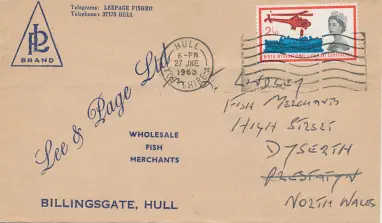 Telegrams: LEEPAGE FISHBO
Telephone: 37378 HULL
LP
BRAND
Lee & Page Ltd
WHOLESALE
FISH
MERCHANTS
BILLINGSGATE, HULL
HULL
6-PM
27 JNE
1963
YORKSHIRE
2½d
LINDLEY
FISH MERCHANTS
HIGH STREET
DYSERTH
PRESTATYN
NORTH WALES